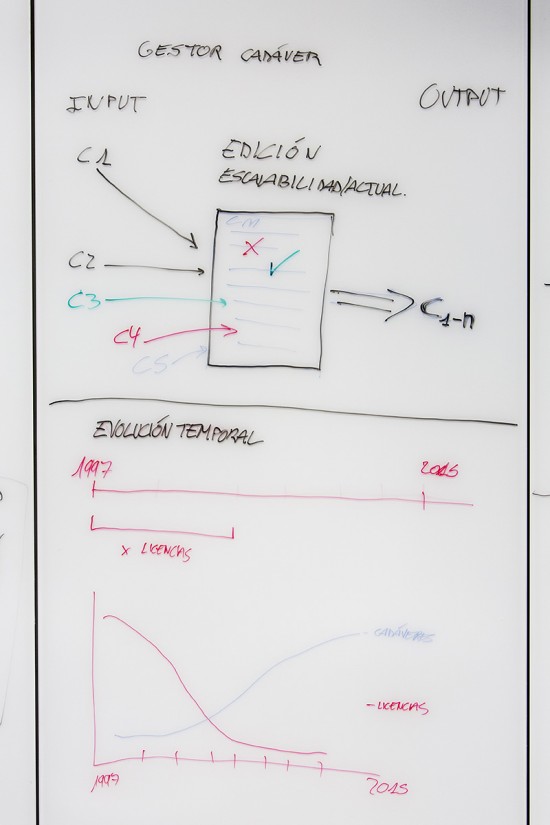 GESTOR CADÁVER
INPUT
OUTPUT
C1
EDICIÓN
ESCALABILIDAD/ACTUAL.
C-M
C2
C3
C4
C5
C1-n
EVOLUCIÓN TEMPORAL
1997
2015
X LICENCIAS
- CADÁVERES
- LICENCIAS
1997
2015